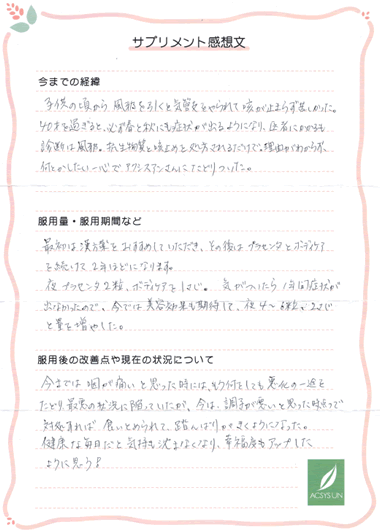 サプリメント感想文
今までの経緯
子供の頃から、風邪を引くと気管支をやられて咳が止まらず苦しかった。
40才を過ぎると、必ず春と秋にも症状が出るようになり、医者にかかるも
診断は風邪。抗生物質と咳止めを処方されるだけで、理由がわからず、
何とかしたい一心でアクシスアンさんにたどりついた。
服用量・服用期間など
最初は漢方薬をおすすめしていただき、その後はプラセンタとボディケア
を続けて2年ほどになります。
夜プラセンタ2粒、ボディケアを1さじ。気がついたら1年間症状が
出なかったので、今では美容効果も期待して、夜4〜6粒、2さじ
と量を増やした。
服用後の改善点や現在の状況について
今までは咽が痛いと思った時には、もう何をしても悪化の一途を
たどり、最悪の状況に陥っていたが、今は、調子が悪いと思った時点で
対処すれば、食いとめられて、踏んばりがきくようになった。
健康な毎日だと気持も沈まなくなり、幸福度もアップした
ように思う♪
ACSYSUN